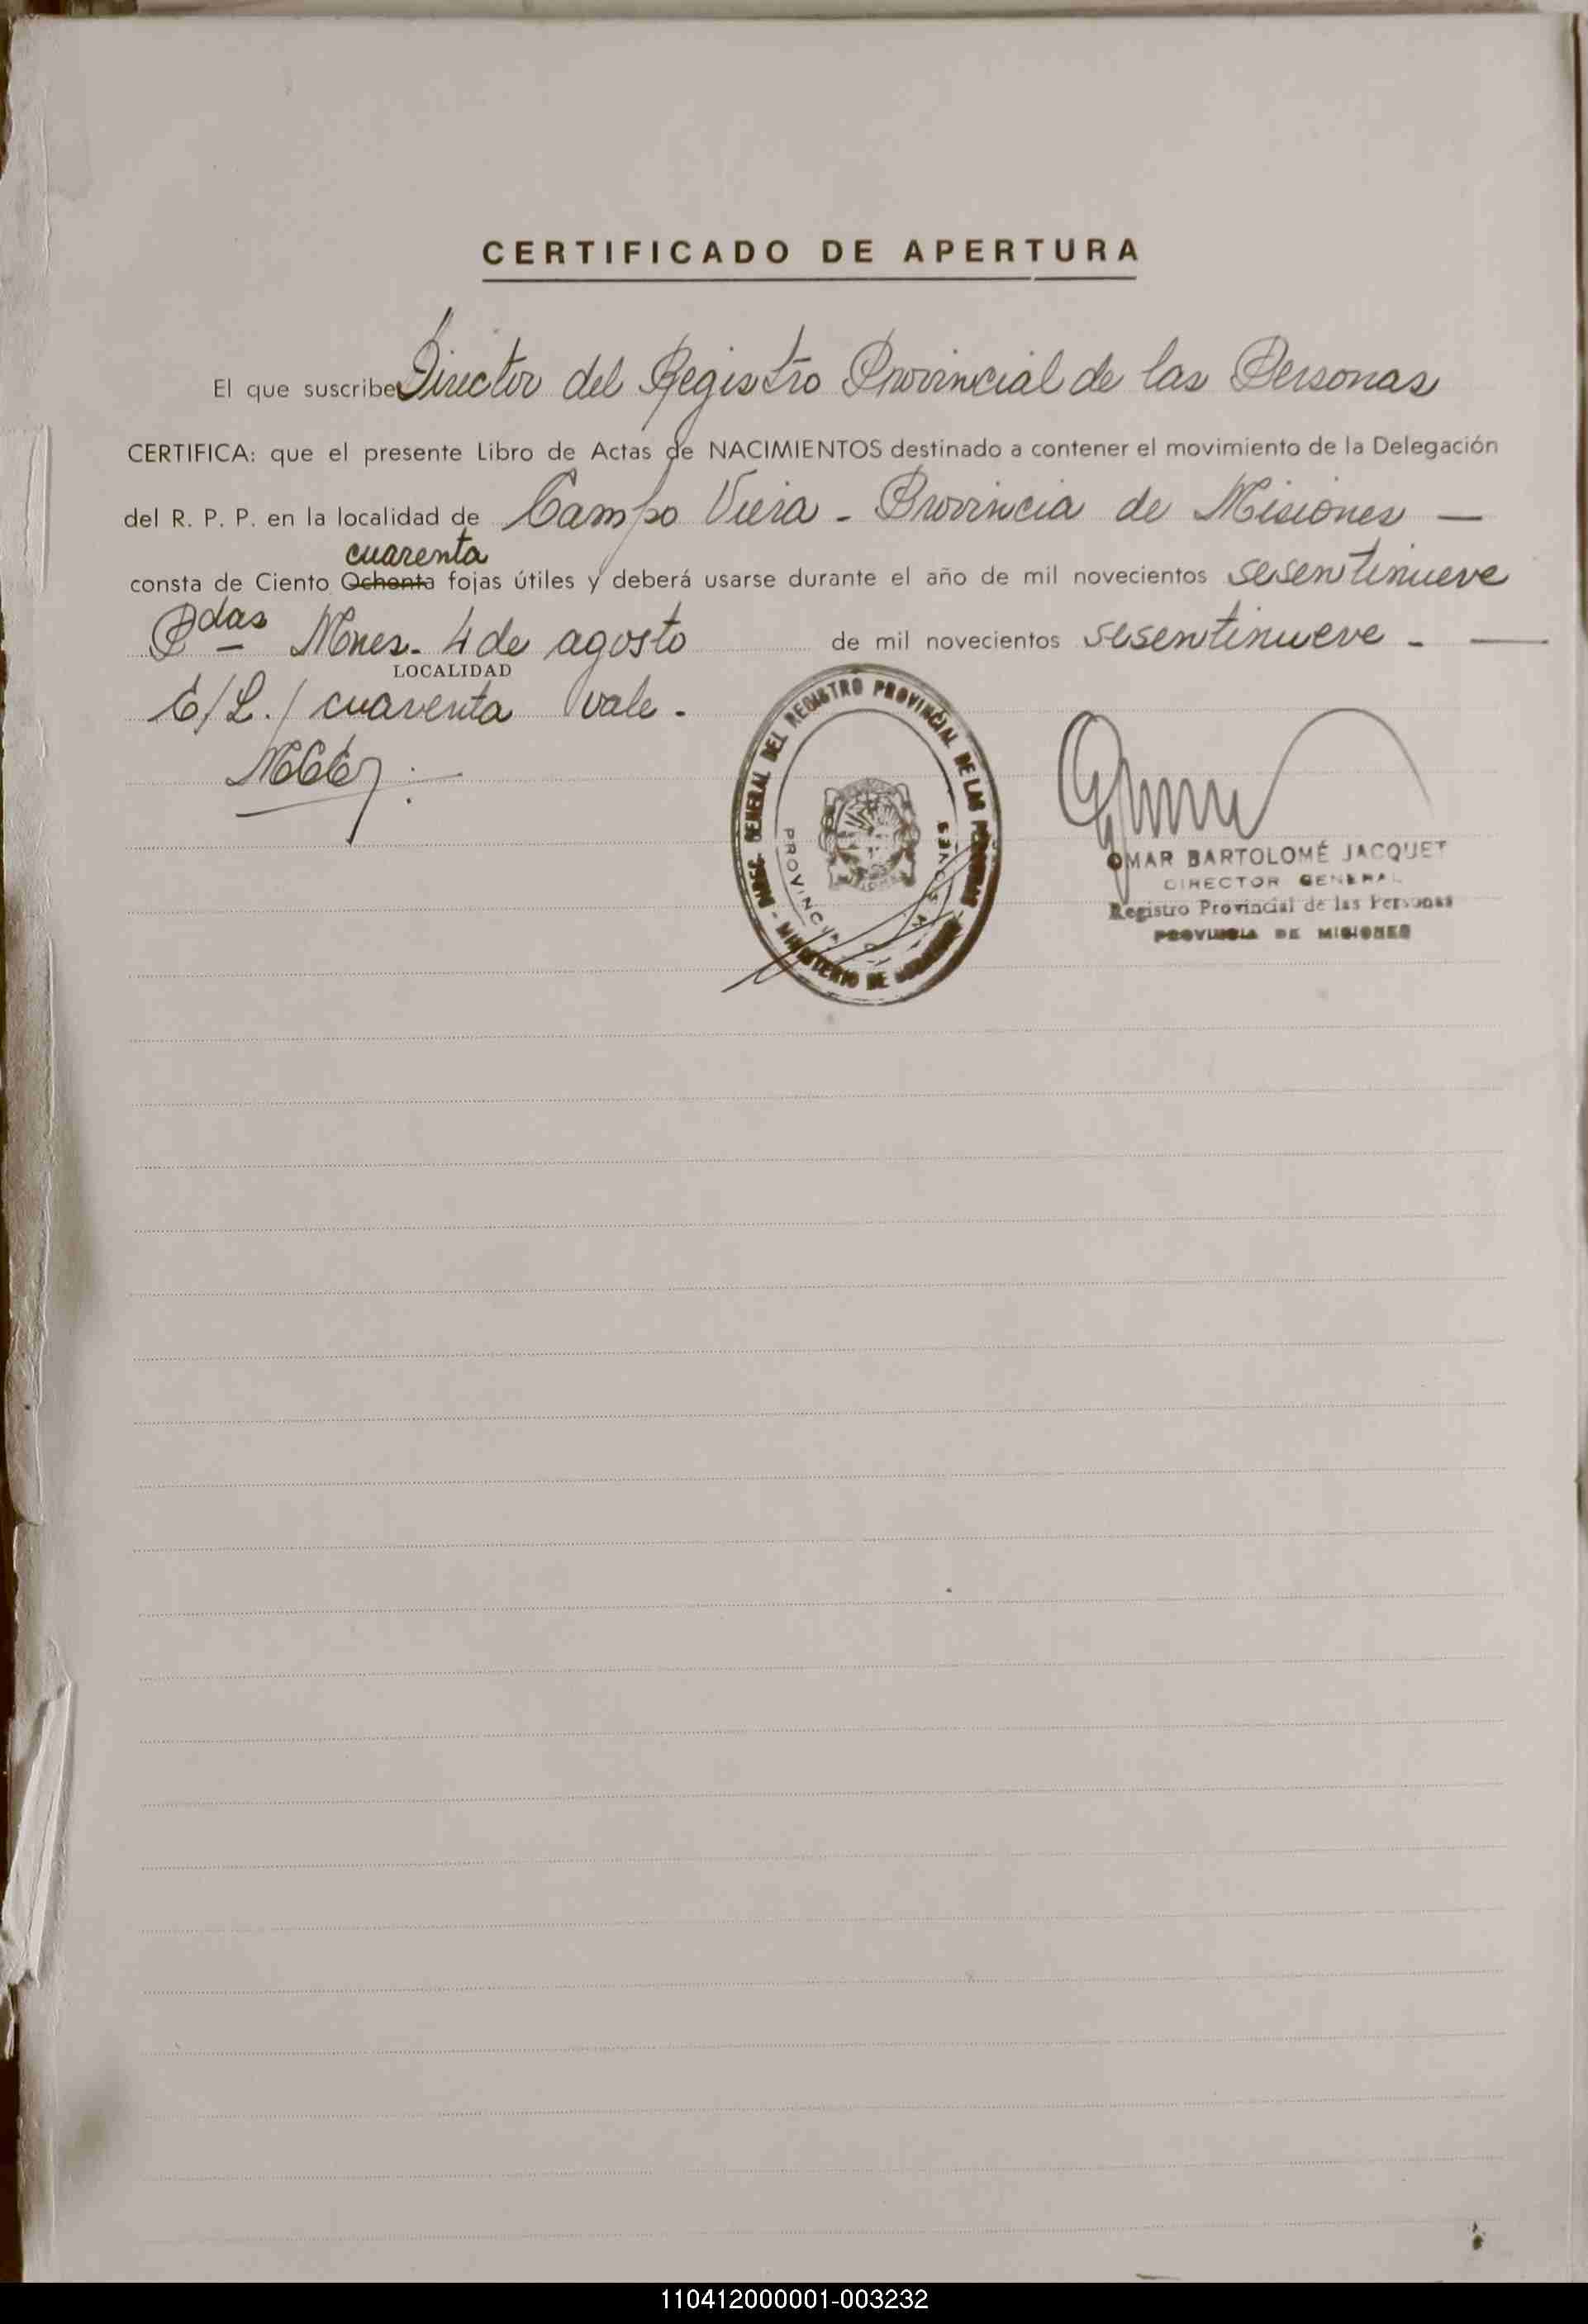 CERTIFICADO DE APERTURA
El que suscribe Director del Registro Provincial de las Personas
CERTIFICA: que el presente Libro de Actas de NACIMIENTOS destinado a contener el movimiento de la Delegación
del R. P. P. en la localidad de Campo Viera - Provincia de Misiones —
cuarenta
consta de Ciento Ochenta fojas útiles y deberá usarse durante el año de mil novecientos sesentinueve
Pdas Mnes. 4 de agosto de mil novecientos sesentinueve - —
LOCALIDAD
E/L./ cuarenta vale.
DIREC. GENERAL DEL REGISTRO PROVINCIAL DE LAS PERSONAS - MINISTERIO DE
PROVINCIA DE MISIONES
OMAR BARTOLOMÉ JACQUET
DIRECTOR GENERAL
Registro Provincial de las Personas
PROVINCIA DE MISIONES
110412000001-003232